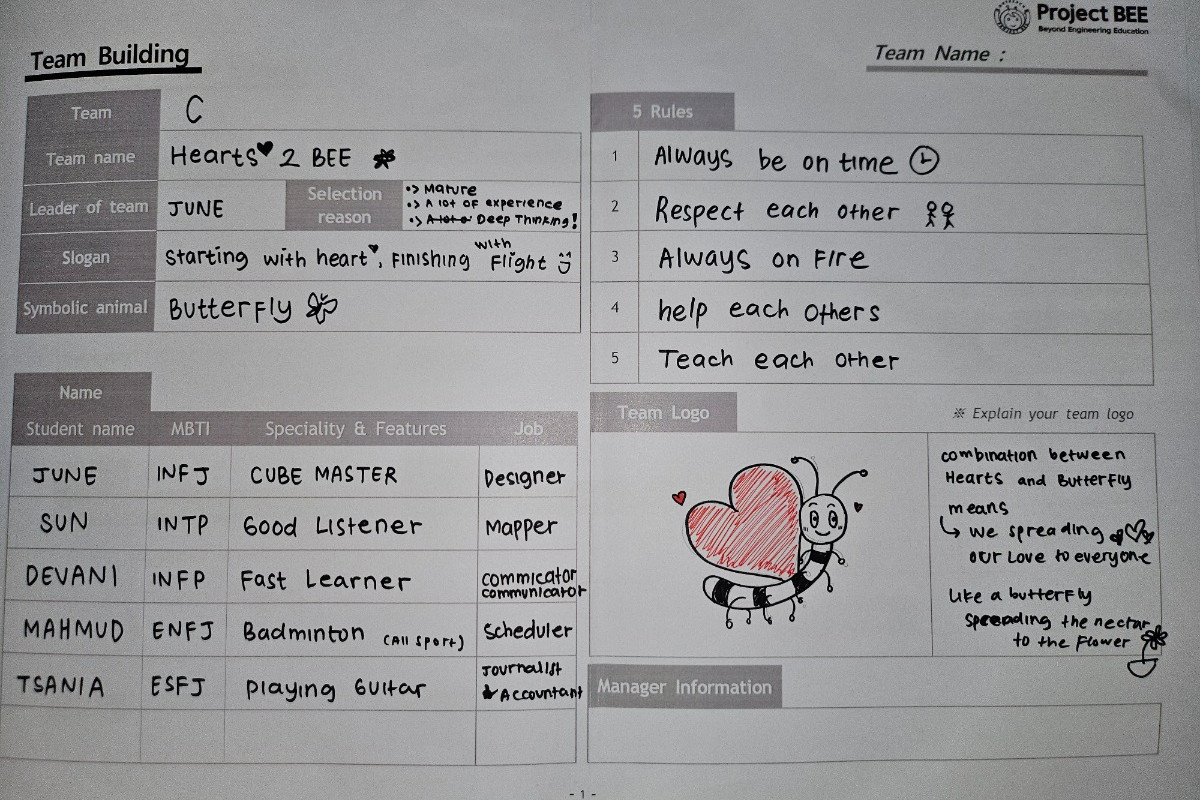 Project BEE
Beyond Engineering Education
Team Building
Team Name :
Team C
Team name Hearts 2 BEE
Leader of team JUNE Selection reason
•> Mature
•> A lot of experience
•> A lot o Deep Thinking!
Slogan Starting with heart, Finishing with Flight
Symbolic animal Butterfly
5 Rules
1 Always be on time
2 Respect each other
3 Always on Fire
4 help each others
5 Teach each other
Name
Student name MBTI Speciality & Features Job
JUNE INFJ CUBE MASTER Designer
SUN INTP Good Listener Mapper
DEVANI INFP Fast Learner commicator
communicator
MAHMUD ENFJ Badminton (All Sport) Scheduler
TSANIA ESFJ Playing Guitar Journalist
& Accountant
Team Logo
※ Explain your team logo
combination between
Hearts and Butterfly
means
↳ we spreading
our Love to everyone
Like a butterfly
spreading the nectar
to the Flower
Manager Information
- 1 -